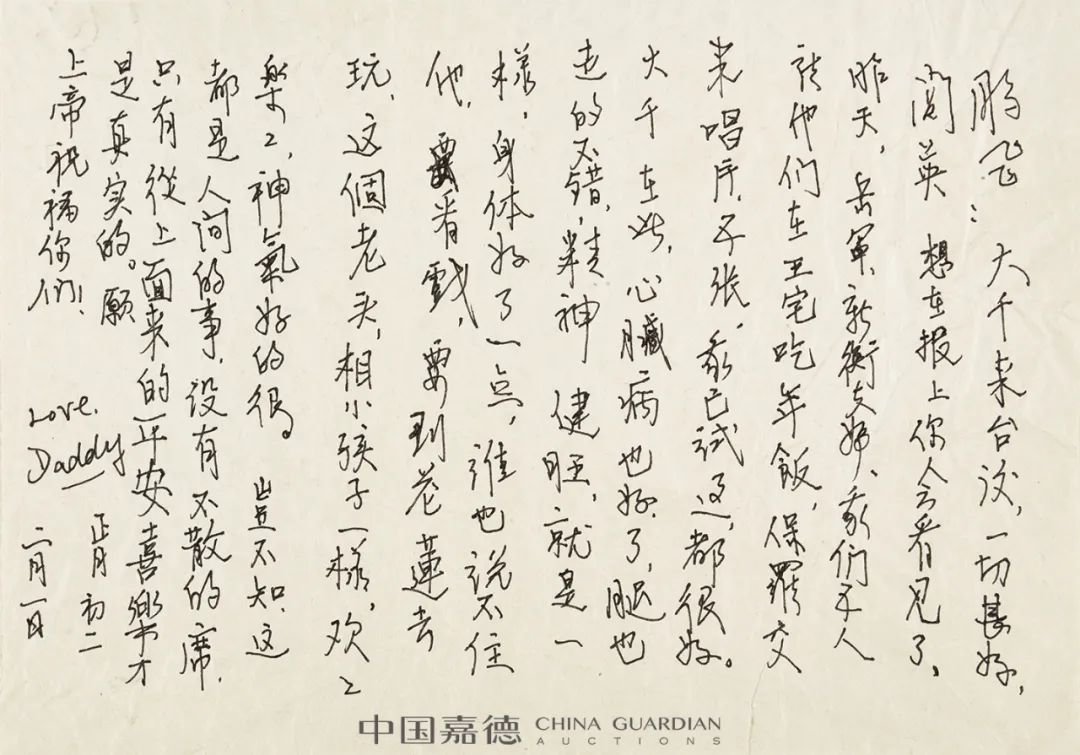 鵬飛: 大千来台後,一切甚好,
閭英 想在报上你人会看见了。
昨天,岳軍、新衡夫婦、我们
他们在王宅吃年飯,保羅交
来唱片五张,我已试过,都很好。
大千在此,心臟病也好了,腿也
走的不错,精神健旺,就是一
樣,身体好了一点,谁也说不住
他,要看戲,要到花蓮去
玩,这個老头,相小孩子一樣,欢〻
樂〻,神氣好的很。豈不知,这
都是人间的事,没有不散的席,
只有從上面来的平安喜樂才
是真实的。願
上帝祝福你们!
Love.
Daddy
正月初二
二月一日
中国嘉德 CHINA GUARDIAN
AUCTIONS